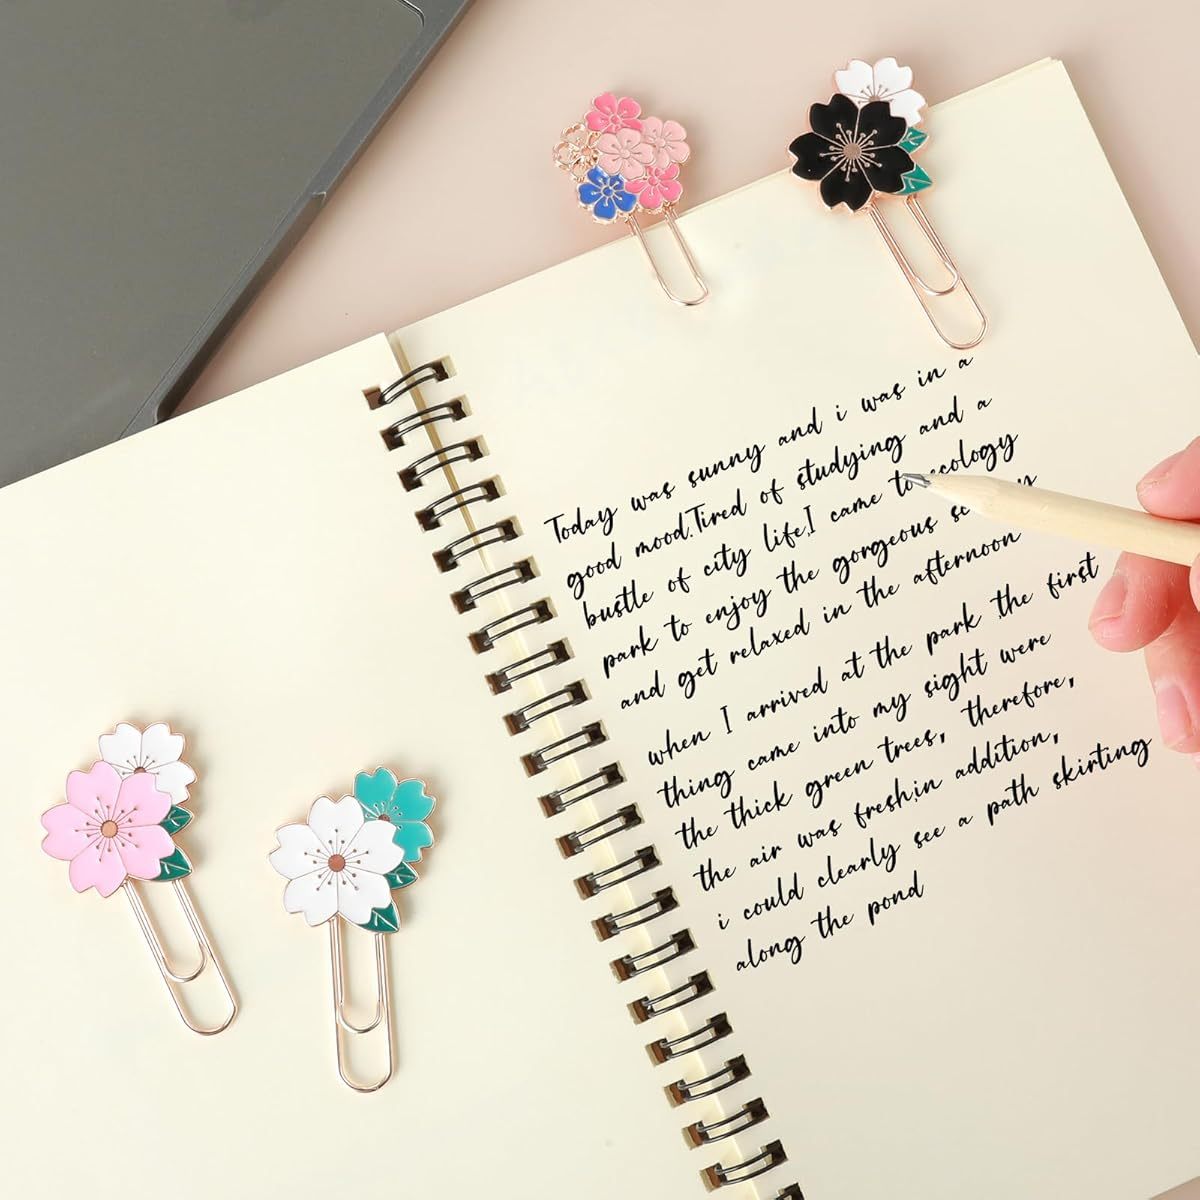 Today was sunny and i was in a
good mood.Tired of studying and a
bustle of city life,I came to ecology
park to enjoy the gorgeous
and get relaxed in the afternoon
when I arrived at the park ,the first
thing came into my sight were
the thick green trees, therefore,
the air was fresh,in addition,
i could clearly see a path skirting
along the pond